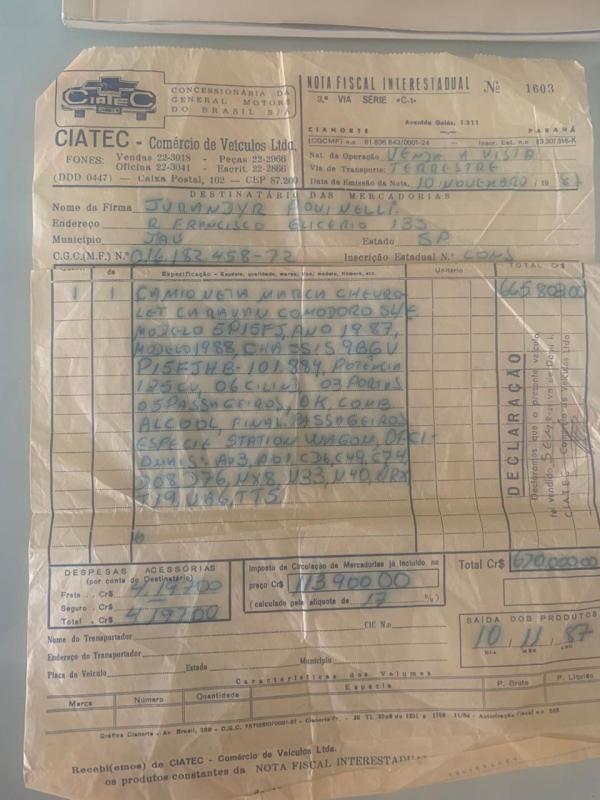 CIATEC
CONCESSIONÁRIA DA
GENERAL MOTORS
DO BRASIL S/A
CIATEC - Comércio de Veículos Ltda.
FONES: Vendas 22-3018 - Peças 22-2966
Oficina 22-3041 - Escrit. 22-2866
(DDD 0447) — Caixa Postal, 102 — CEP 87.200
NOTA FISCAL INTERESTADUAL Nº 1603
3.ª VIA SÉRIE «C-1»
Avenida Goiás, 1.311
CIANORTE —,— PARANÁ
(CGCMF) n.o 81 606 843/0001-24 — Inscr. Est. n.o
Nat. da Operação VENDA A VISTA
Via de Transporte: TERRESTRE
Data da Emissão da Nota, 10 NOVEMBRO / 19 87
DESTINATÁRIO DAS MERCADORIAS
Nome da Firma JURANDYR POVINELLI.
Endereço R. FRANCISCO GLICERIO 133
Município JAU Estado SP
C.G.C.(M.F.) N.º 016.182.458-72 Inscrição Estadual N.º CONS
de Especificação - Espécie, qualidade, marca, tipo, modelo, número, etc. Unitário TOTAL CR$
1 1 CAMIONETA MARCA CHEVRO 665.803,00
LET CARAVAN COMODORO SL/E
MODELO 5P15FJ, ANO 1987,
MODELO 1988, CHASSIS 9BGV
P15FJHB-101.884, POTENCIA
125CV, 06 CILIN, 03 PORTAS
05 PASSAGEIROS, OK COMB
ALCOOL, FINAL. PASSAGEIROS
ESPECIE STATION WAGON, OPCI-
ONAIS: AV3, A01, C26, C49, C74
D08, D76, NX8, N33, N40,
T19, UA6, TT5
DECLARAÇÃO
Declaramos que o presente veículo
foi vendido SEM Reserva de Domí
CIATEC - Comércio de Veículos Ltda
DESPESAS ACESSÓRIAS
(por conta do Destinatário)
Frete . . Cr$ 4.197,00
Seguro . Cr$
Total . Cr$ 4.197,00
Imposto de Circulação de Mercadorias já incluído no
preço Cr$ 113.900,00
(calculado pela alíquota de 17 %)
Total Cr$ 670.000,00
CIC N.o
Nome do Transportador
Endereço do Transportador
Placa do Veículo Estado Município
SAÍDA DOS PRODUTOS
10 / 11 / 87
DIA MÊS ANO
Características dos Volumes
Marca Número Quantidade Espécie P. Bruto P. Líquido
Gráfica Cianorte - Av. Brasil,
Recebi(emos) de CIATEC - Comércio de Veículos Ltda.
os produtos constantes da NOTA FISCAL INTERESTADUAL